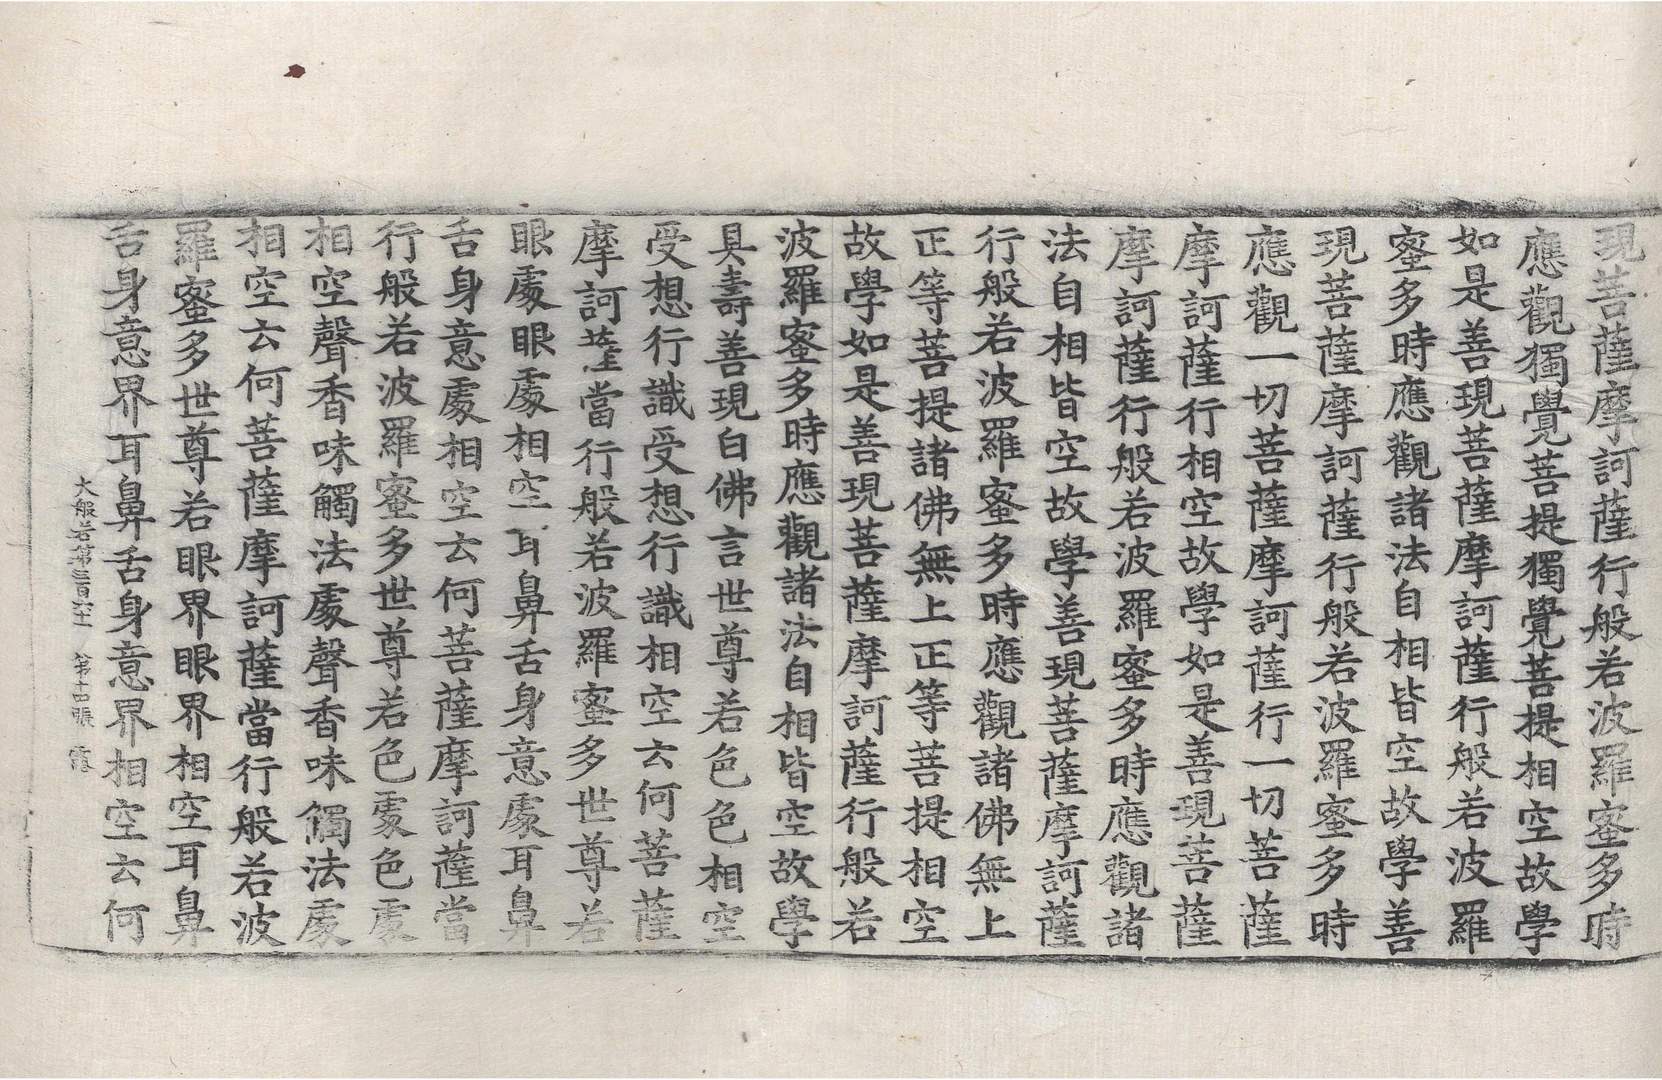 現菩薩摩訶薩行般若波羅蜜多時
應觀獨覺菩提獨覺菩提相空故學
如是善現菩薩摩訶薩行般若波羅
蜜多時應觀諸法自相皆空故學善
現菩薩摩訶薩行般若波羅蜜多時
應觀一切菩薩摩訶薩行一切菩薩
摩訶薩行相空故學如是善現菩薩
摩訶薩行般若波羅蜜多時應觀諸
法自相皆空故學善現菩薩摩訶薩
行般若波羅蜜多時應觀諸佛無上
正等菩提諸佛無上正等菩提相空
故學如是善現菩薩摩訶薩行般若
波羅蜜多時應觀諸法自相皆空故學
具壽善現白佛言世尊若色色相空
受想行識受想行識相空云何菩薩
摩訶薩當行般若波羅蜜多世尊若
眼處眼處相空耳鼻舌身意處耳鼻
舌身意處相空云何菩薩摩訶薩當
行般若波羅蜜多世尊若色處色處
相空聲香味觸法處聲香味觸法處
相空云何菩薩摩訶薩當行般若波
羅蜜多世尊若眼界眼界相空耳鼻
舌身意界耳鼻舌身意界相空云何
大般若第三百六十一 第十四張 露